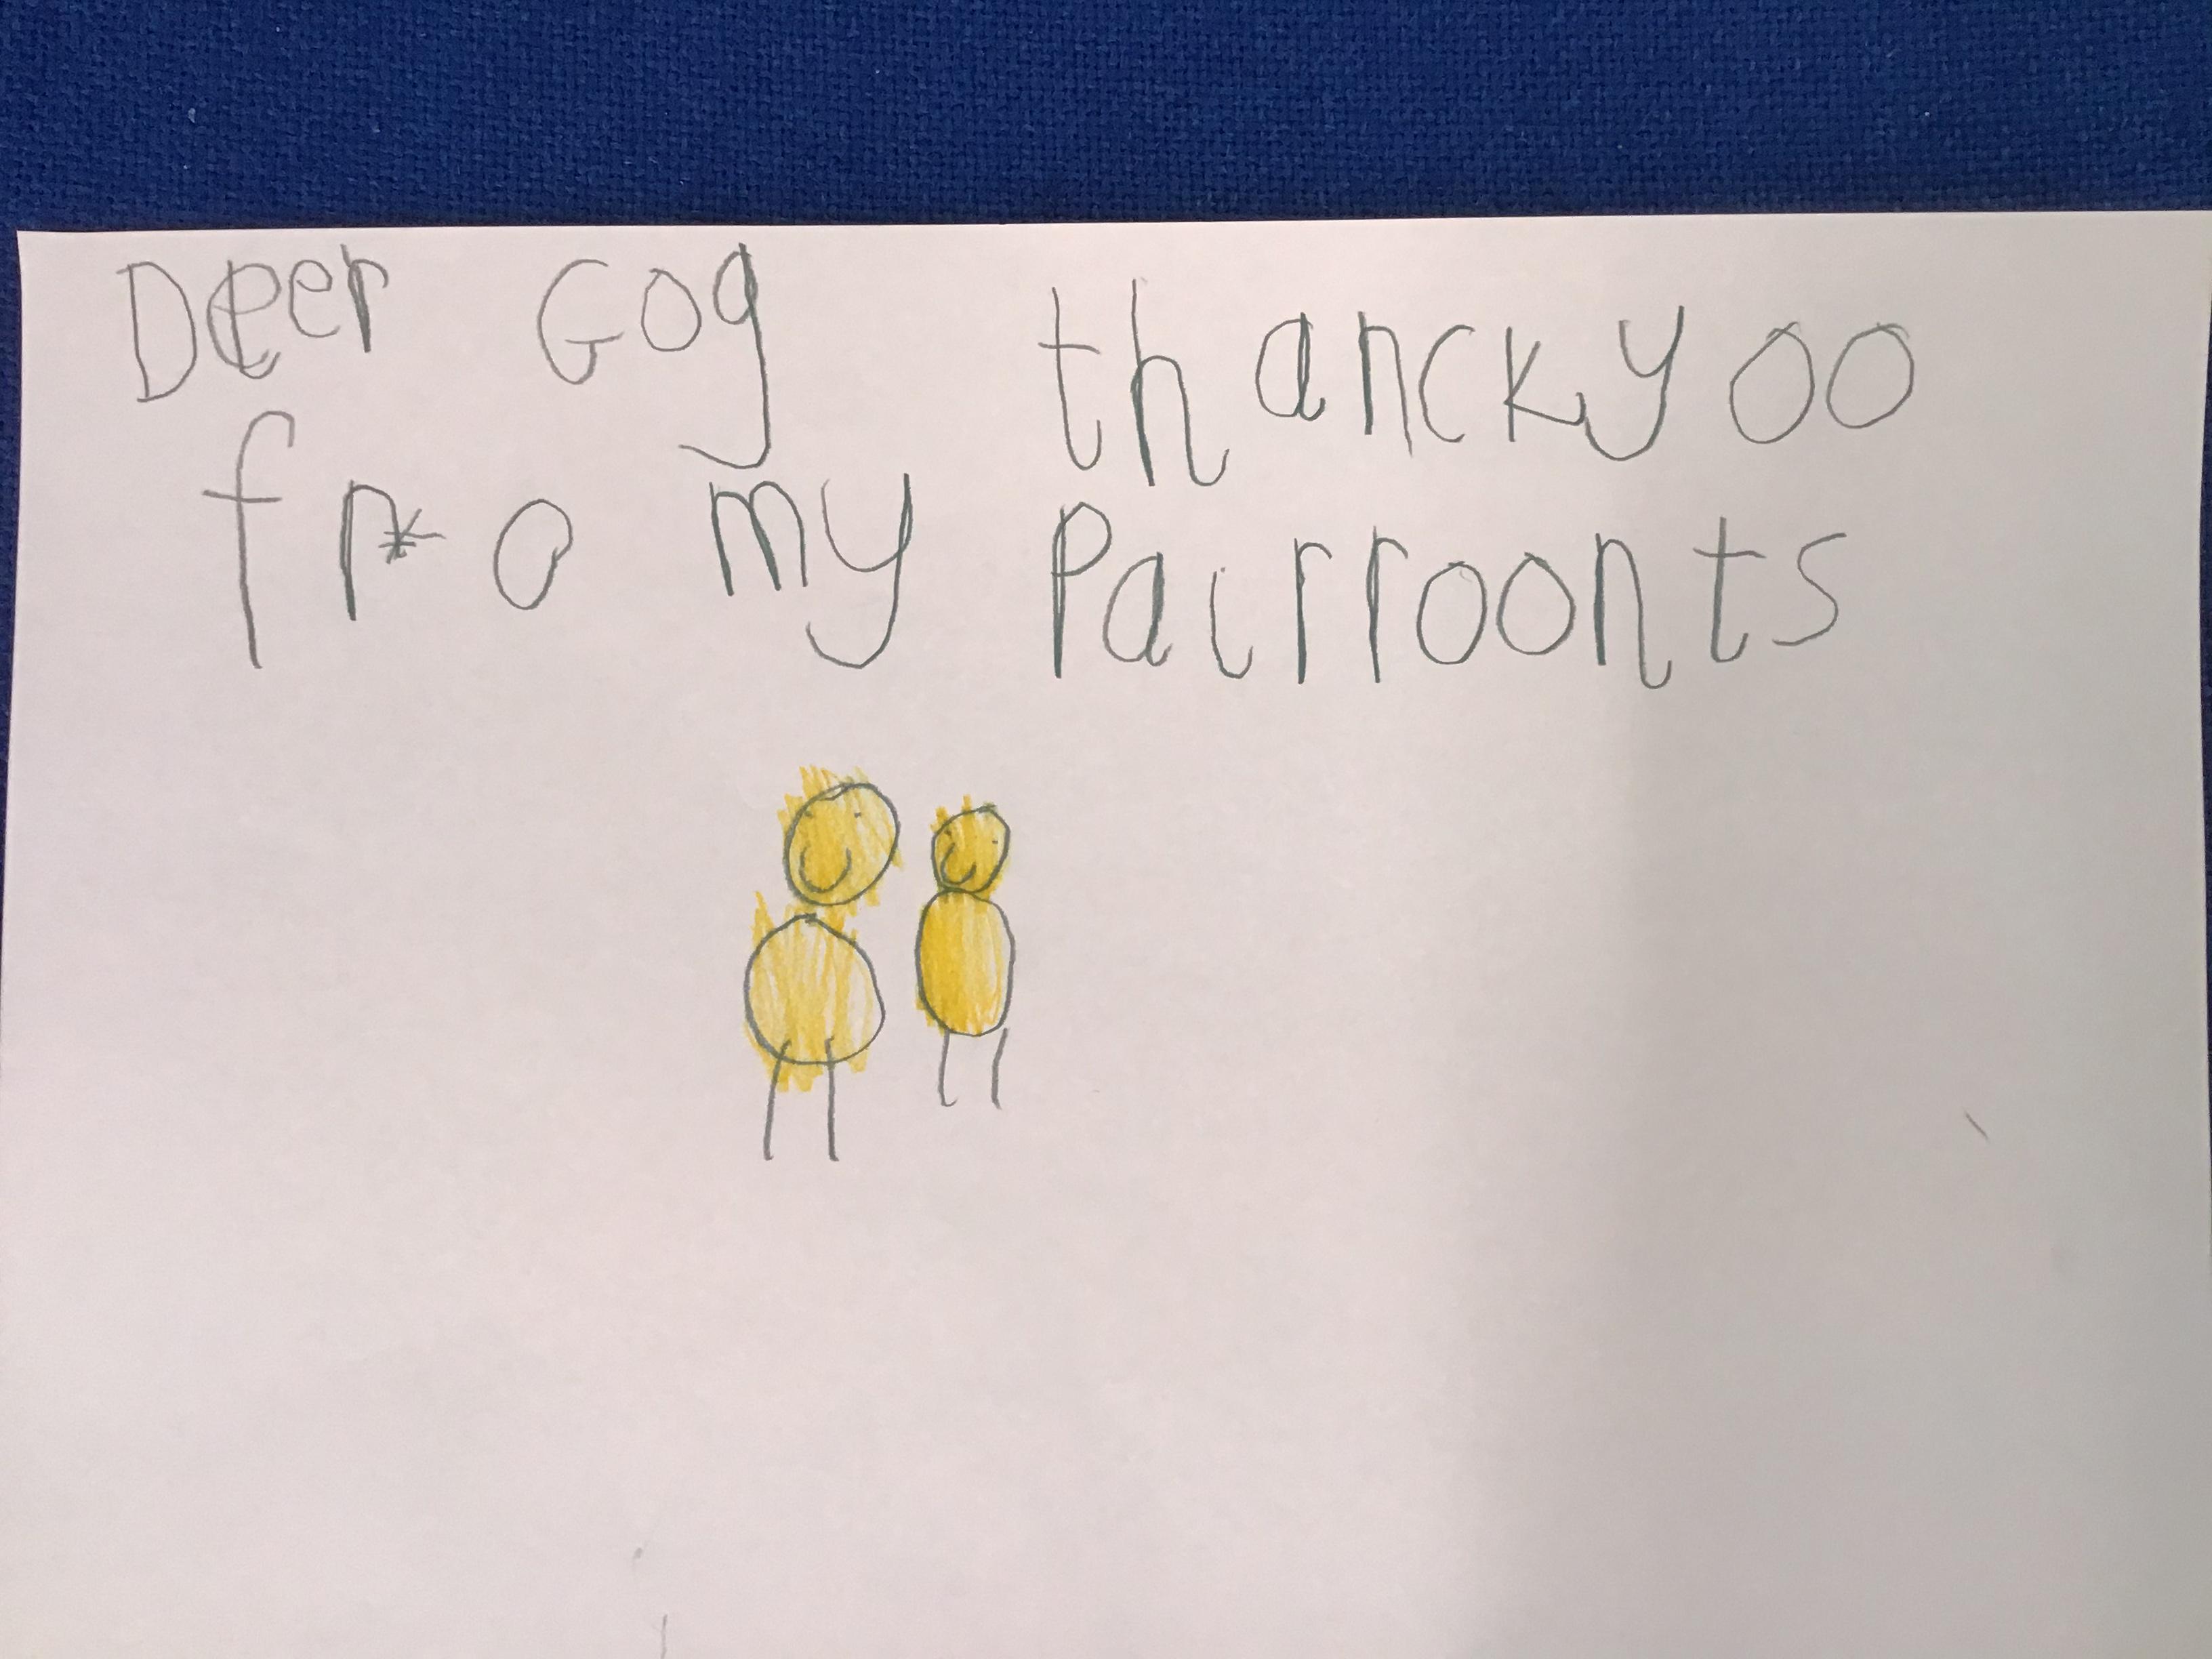 Deer Gog thanckyoo
fro my Pairroonts